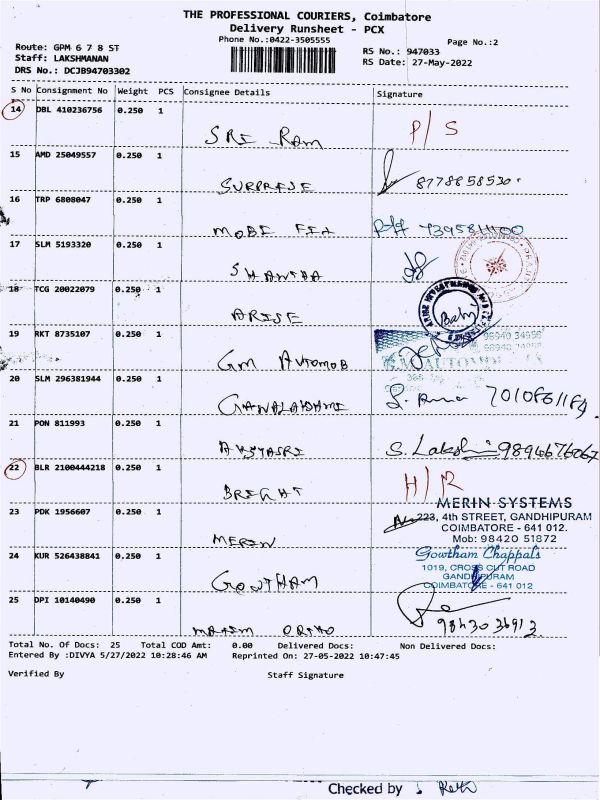 THE PROFESSIONAL COURIERS, Coimbatore
Delivery Runsheet - PCX
Phone No.:0422-3505555
Page No.:2
Route: GPM 6 7 8 ST
Staff: LAKSHMANAN
DRS No.: DCJB94703302
RS No.: 947033
RS Date: 27-May-2022
S No Consignment No Weight PCS Consignee Details Signature
14 DBL 410236756 0.250 1
SRI RAM P/S
15 AMD 25049557 0.250 1
SURPRISE 8778858530
16 TRP 6808047 0.250 1
MOBI
17 SLM 5193320 0.250 1
SHANTHA
18 TCG 20022079 0.250 1
ARISE
19 RKT 8735107 0.250 1
GM AUTOMOB
20 SLM 296381944 0.250 1
21 PON 811993 0.250 1
S. Lakshmi
22 BLR 2100444218 0.250 1
BRIGHT H/R
23 PDK 1956607 0.250 1
MERIN
MERIN SYSTEMS
223, 4th STREET, GANDHIPURAM
COIMBATORE - 641 012.
Mob: 98420 51872
24 KUR 526438841 0.250 1
GOWTHAM
Gowtham Chappals
1019, CROSS CUT ROAD
GANDHIPURAM
COIMBATORE - 641 012
25 DPI 10140490 0.250 1
ORTHO 98430 36913
Total No. Of Docs: 25 Total COD Amt: 0.00 Delivered Docs: Non Delivered Docs:
Entered By :DIVYA 5/27/2022 10:28:46 AM Reprinted On: 27-05-2022 10:47:45
Verified By Staff Signature
Checked by